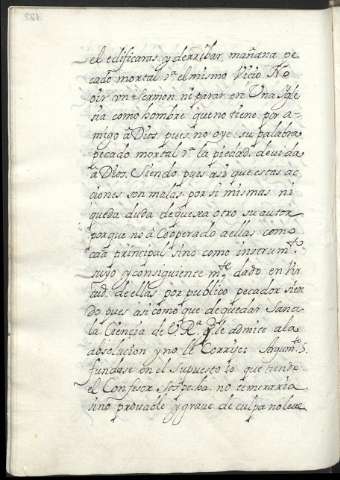 el edificaras, y derribar, mañana pe
cado mortal r.ª el mismo Vicio No
oir un Sermon, ni parar en Una Igle
sia como hombre que no tiene por a-
migo a Dios pues no oye su palabra
pecado mortal r.ª la piedad devida
a Dios. Siendo pues asi que estas ac
ciones son malas por si mismas ni
queda duda de que sea otro su autor
porque no à Cooperado aellas como
caãa principal sino como instrum.to
suyo y consiguiente m.te dado en vir
tud de ellas por publico pecador sien
do pues asi como de quedar Sanca-
la Ciencia de V. R.ª q.e le admite ala
absolucion y no le Corrige. Aqui
fundase en el Supuesto to que tiene
el Confesor sospecha no temeraria
sino provable y grave de culpa no leve